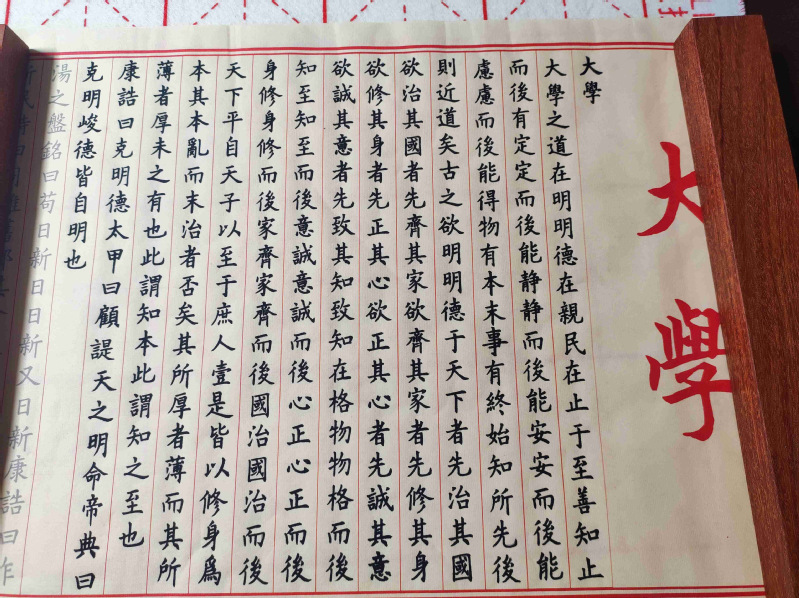 大學
大學
大學之道在明明德在親民在止于至善知止
而後有定定而後能静静而後能安安而後能
慮慮而後能得物有本末事有終始知所先後
則近道矣古之欲明明德于天下者先治其國
欲治其國者先齊其家欲齊其家者先修其身
欲修其身者先正其心欲正其心者先誠其意
欲誠其意者先致其知致知在格物物格而後
知至知至而後意誠意誠而後心正心正而後
身修身修而後家齊家齊而後國治國治而後
天下平自天子以至于庶人壹是皆以修身爲
本其本亂而末治者否矣其所厚者薄而其所
薄者厚未之有也此謂知本此謂知之至也
康誥曰克明德太甲曰顧諟天之明命帝典曰
克明峻德皆自明也
湯之盤銘曰苟日新日日新又日新康誥曰作
新民詩曰周雖舊邦其